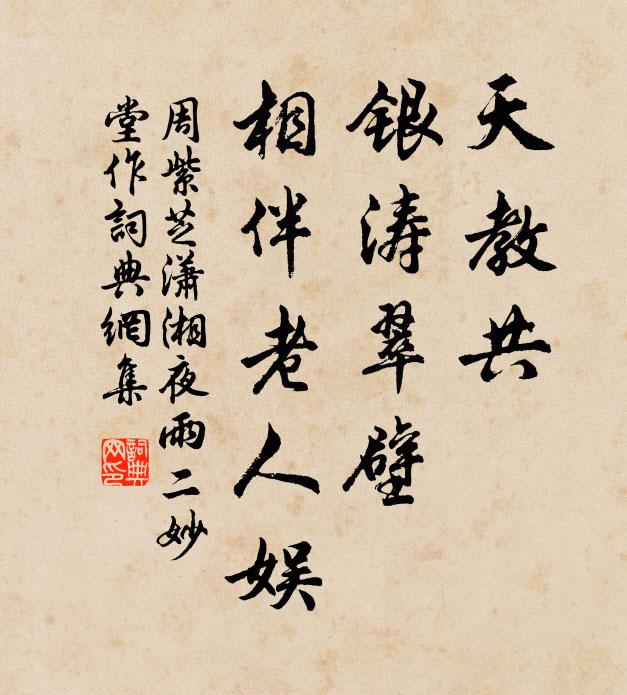 天教共
银涛翠壁
相伴老人娱
周紫芝潇湘夜雨二妙
堂作詞典網集
詞典网印